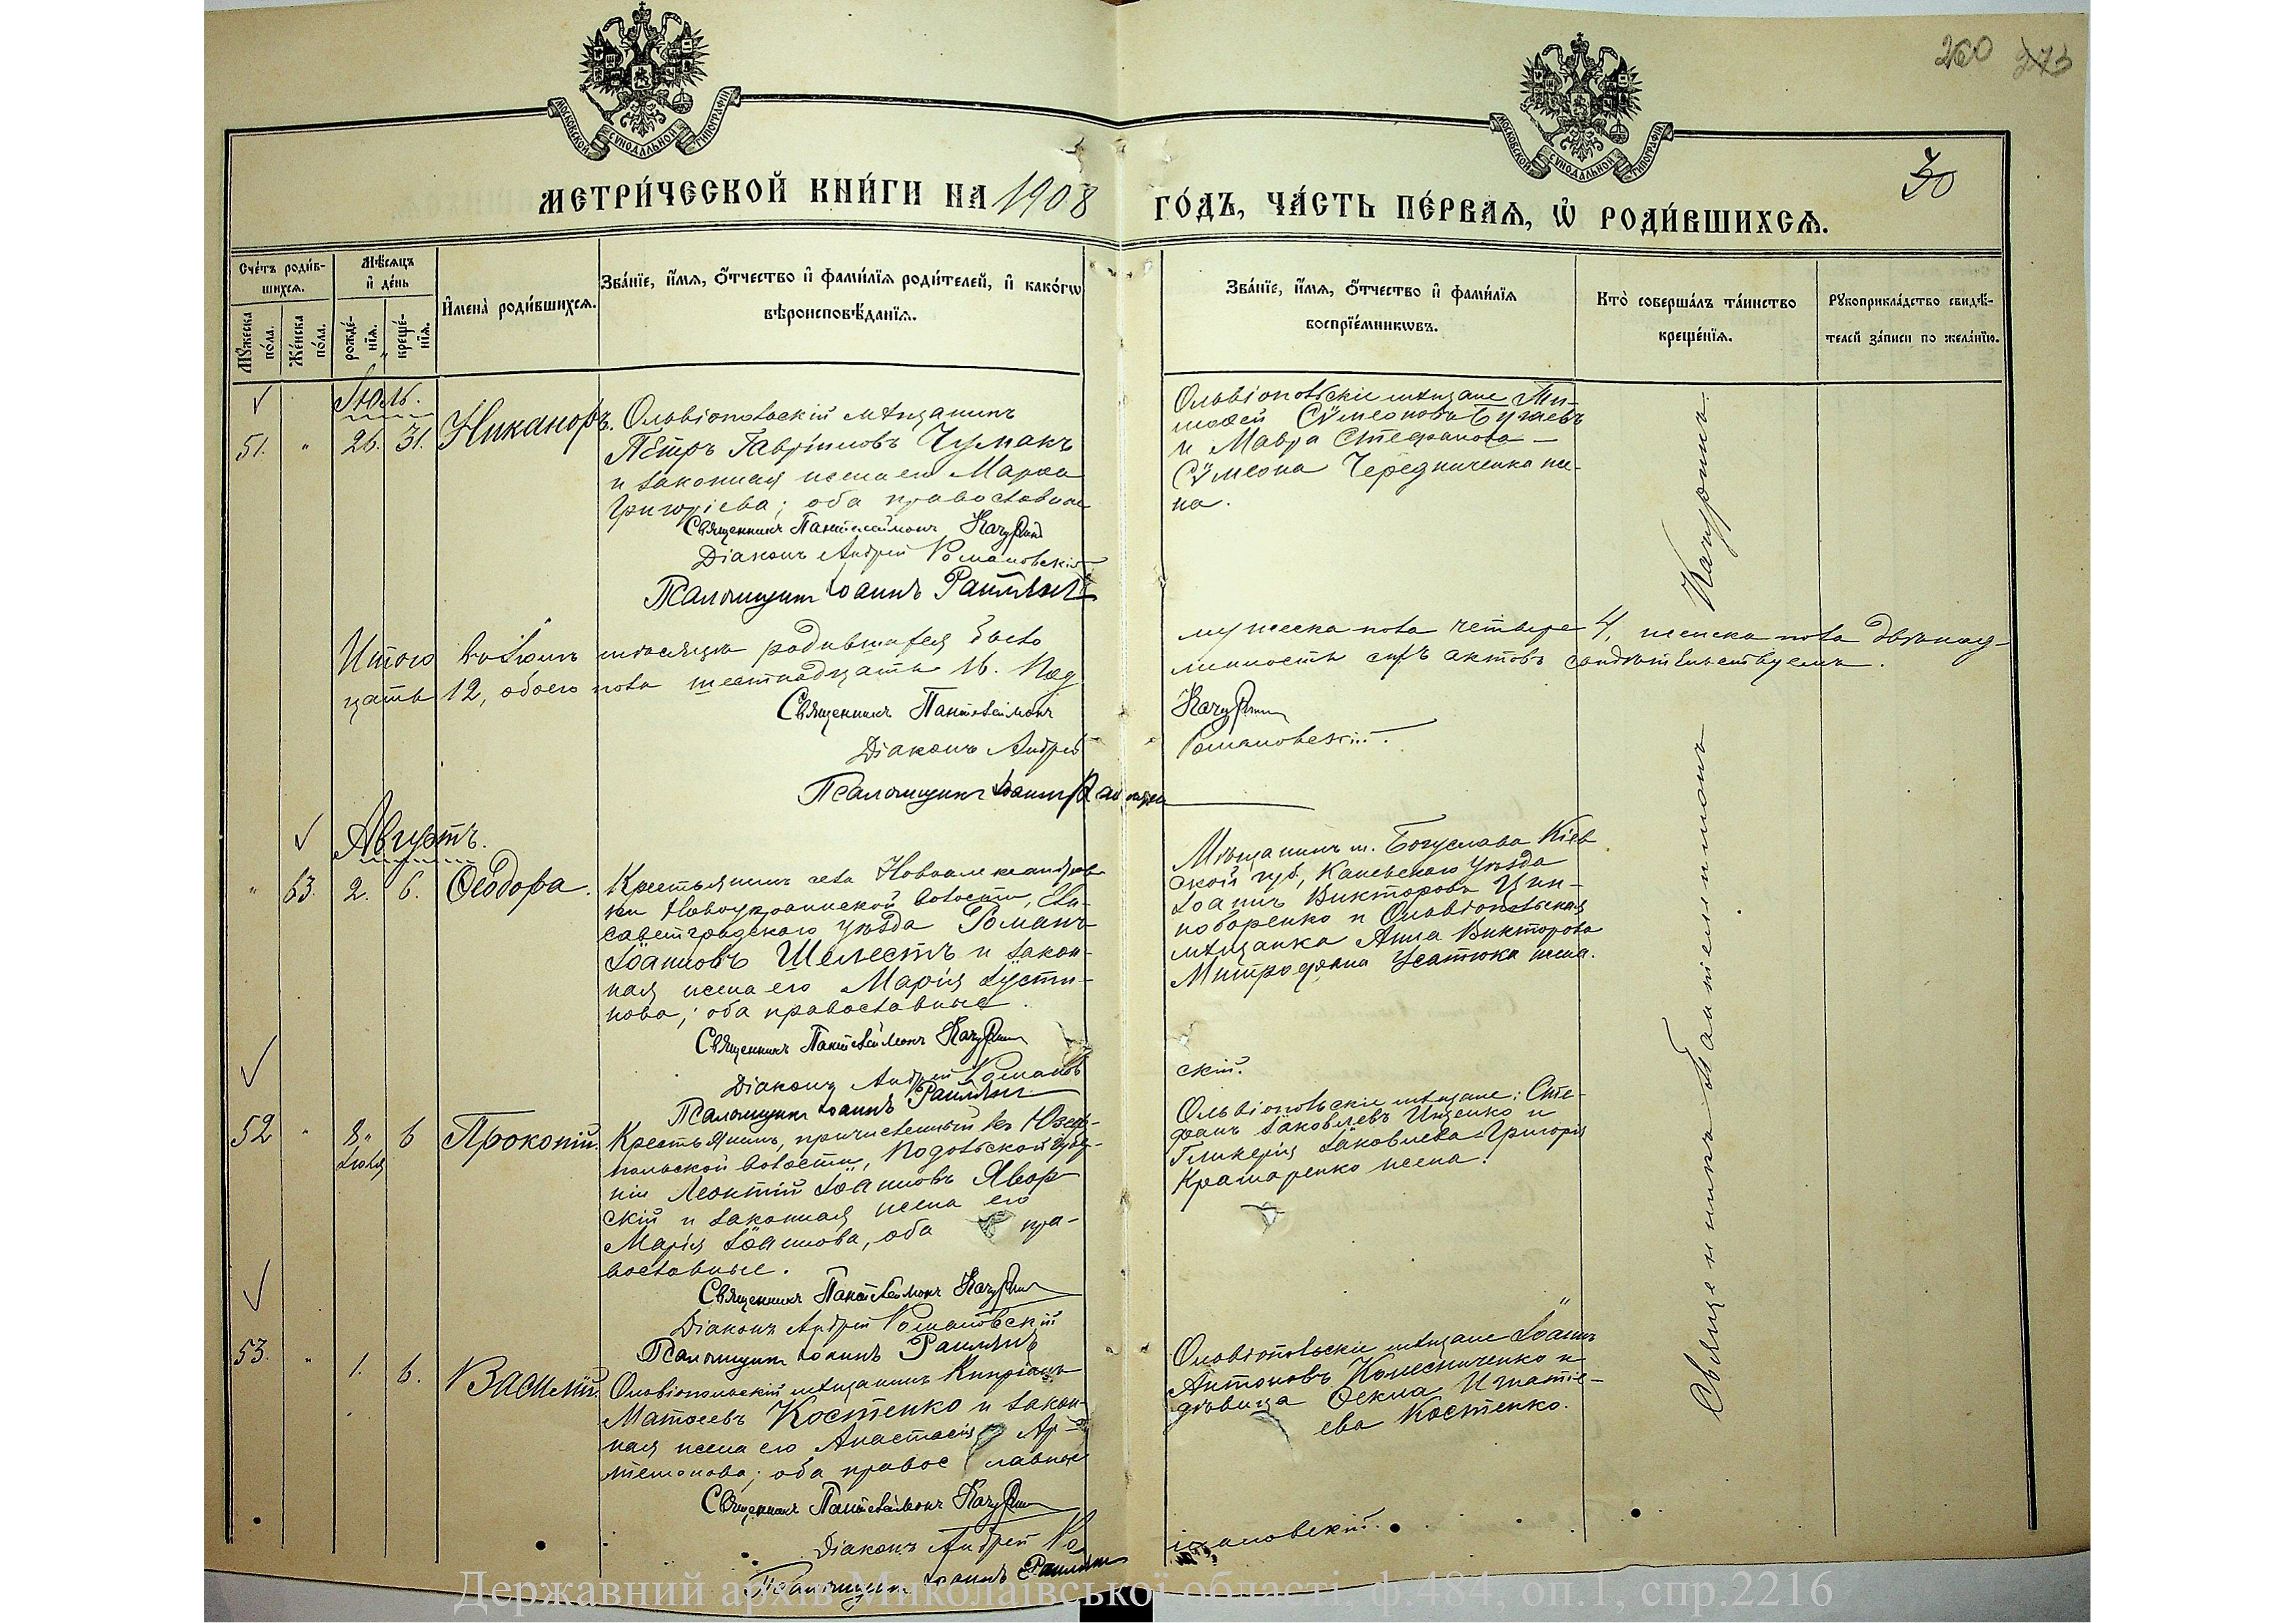 260 273
МОСКОВСКОЙ СѴНОДАЛЬНОЙ ТИПОГРАФІИ
МОСКОВСКОЙ СѴНОДАЛЬНОЙ ТИПОГРАФІИ
30
МЕТРИ́ЧЕСКОЙ КНИ́ГИ НА 1908 ГО́ДЪ, ЧА́СТЬ ПЕ́РВАѦ, Ѡ РОДИ́ВШИХСѦ.
Сче́тъ роди́вшихсѧ.
Мꙋ́жеска по́ла.
Же́нска по́ла.
Мѣ́сѧцъ и де́нь
рожде́нїѧ.
креще́нїѧ.
Имена̀ роди́вшихсѧ.
Зва́нїе, и́мѧ, ѻ́тчество и фами́лїѧ роди́телей, и како́гѡ
вѣроисповѣ́данїѧ.
Зва́нїе, и́мѧ, ѻ́тчество и фами́лїѧ
воспрїе́мникѡвъ.
Кто̀ соверша́лъ та́инство
креще́нїѧ.
Рꙋкоприкла́дство свидѣ́-
телей за́писи по жела́нїю.
Іюль.
51. " 26. 31. Никаноръ.
Ольвіопольскій мѣщанинъ
Петръ Гавріиловъ Чумакъ
и законная жена его Марѳа
Григоріева; оба православные
Священникъ Пантелеимонъ Качурин
Діаконъ Андрей Романовскій
Псаломщикъ Іоаннъ
Ольвіопольскіе мѣщане Ти-
моѳей Сѵмеоновъ Бугаевъ
и Мавра Стефанова —
Сѵмеона Чередниченка же-
на.
Итого въ Іюлѣ мѣсяцѣ родившихся было мужеска пола четыре 4, женска пола двѣнад-
цать 12, обоего пола шестнадцать 16. Под линность сихъ актовъ свидѣтельствуемъ.
Священникъ Пантелеимонъ Качурин
Діаконъ Андрей Романовскій.
Псаломщикъ Іоаннъ
Августъ.
" 63. 2. 6. Ѳеодора.
Крестьянинъ села Новоалександров-
ки Новоукраинской волости, Ели-
саветградскаго уѣзда Романъ
Іоанновъ Шелестъ и закон-
ная жена его Марія Іусти-
нова; оба православные.
Священникъ Пантелеимонъ Качурин
Діаконъ Андрей Романов
скій.
Псаломщикъ Іоаннъ
Мѣщанинъ м. Богуслава Кіев
ской губ., Каневскаго уѣзда
Іоаннъ Викторовъ Цим-
боренко и Ольвіопольская
мѣщанка Анна Викторова
Митрофана Усатюка жена.
52 " 8 Іюля 6 Прокопій.
Крестьянинъ, причисленный къ Юзеф-
польской волости, Подольской губер-
ніи Леонтій Іоанновъ Явор
скій и законная жена его
Марія Іоаннова, оба пра-
вославные.
Священникъ Пантелеимонъ Качурин
Діаконъ Андрей Романовскій
Псаломщикъ Іоаннъ
Ольвіопольскіе мѣщане: Сте-
фанъ Іаковлевъ Ищенко и
Гликерія Іаковлева Григорія
Крамаренко жена.
53. " 1. 6. Василій.
Ольвіопольскій мѣщанинъ Кипріанъ
Матѳеевъ Костенко и закон-
ная жена его Анастасія Ар-
темонова; оба православные
Священникъ Пантелеимонъ Качурин
Діаконъ Андрей Ро
мановскій.
Псаломщикъ Іоаннъ
Ольвіопольскіе мѣщане Іоаннъ
Антоновъ Колесниченко и
дѣвица Ѳекла Игнатіе-
ева Костенко.
Священникъ Пантелеимонъ Качуринъ.
Державний архів Миколаївської області, ф.484, оп.1, спр.2216